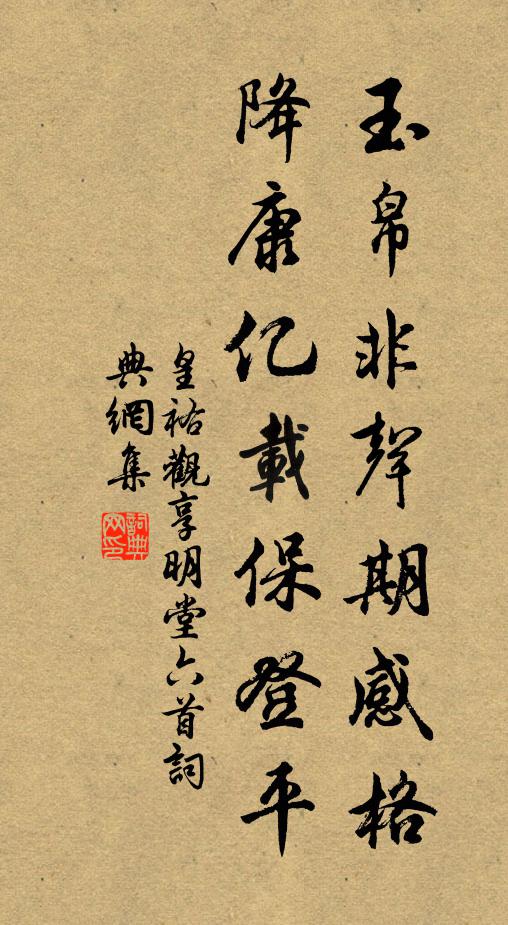 玉帛非聲期感格
降康亿載保登平
皇祐觀享明堂六首詞
典網集
詞典
网印